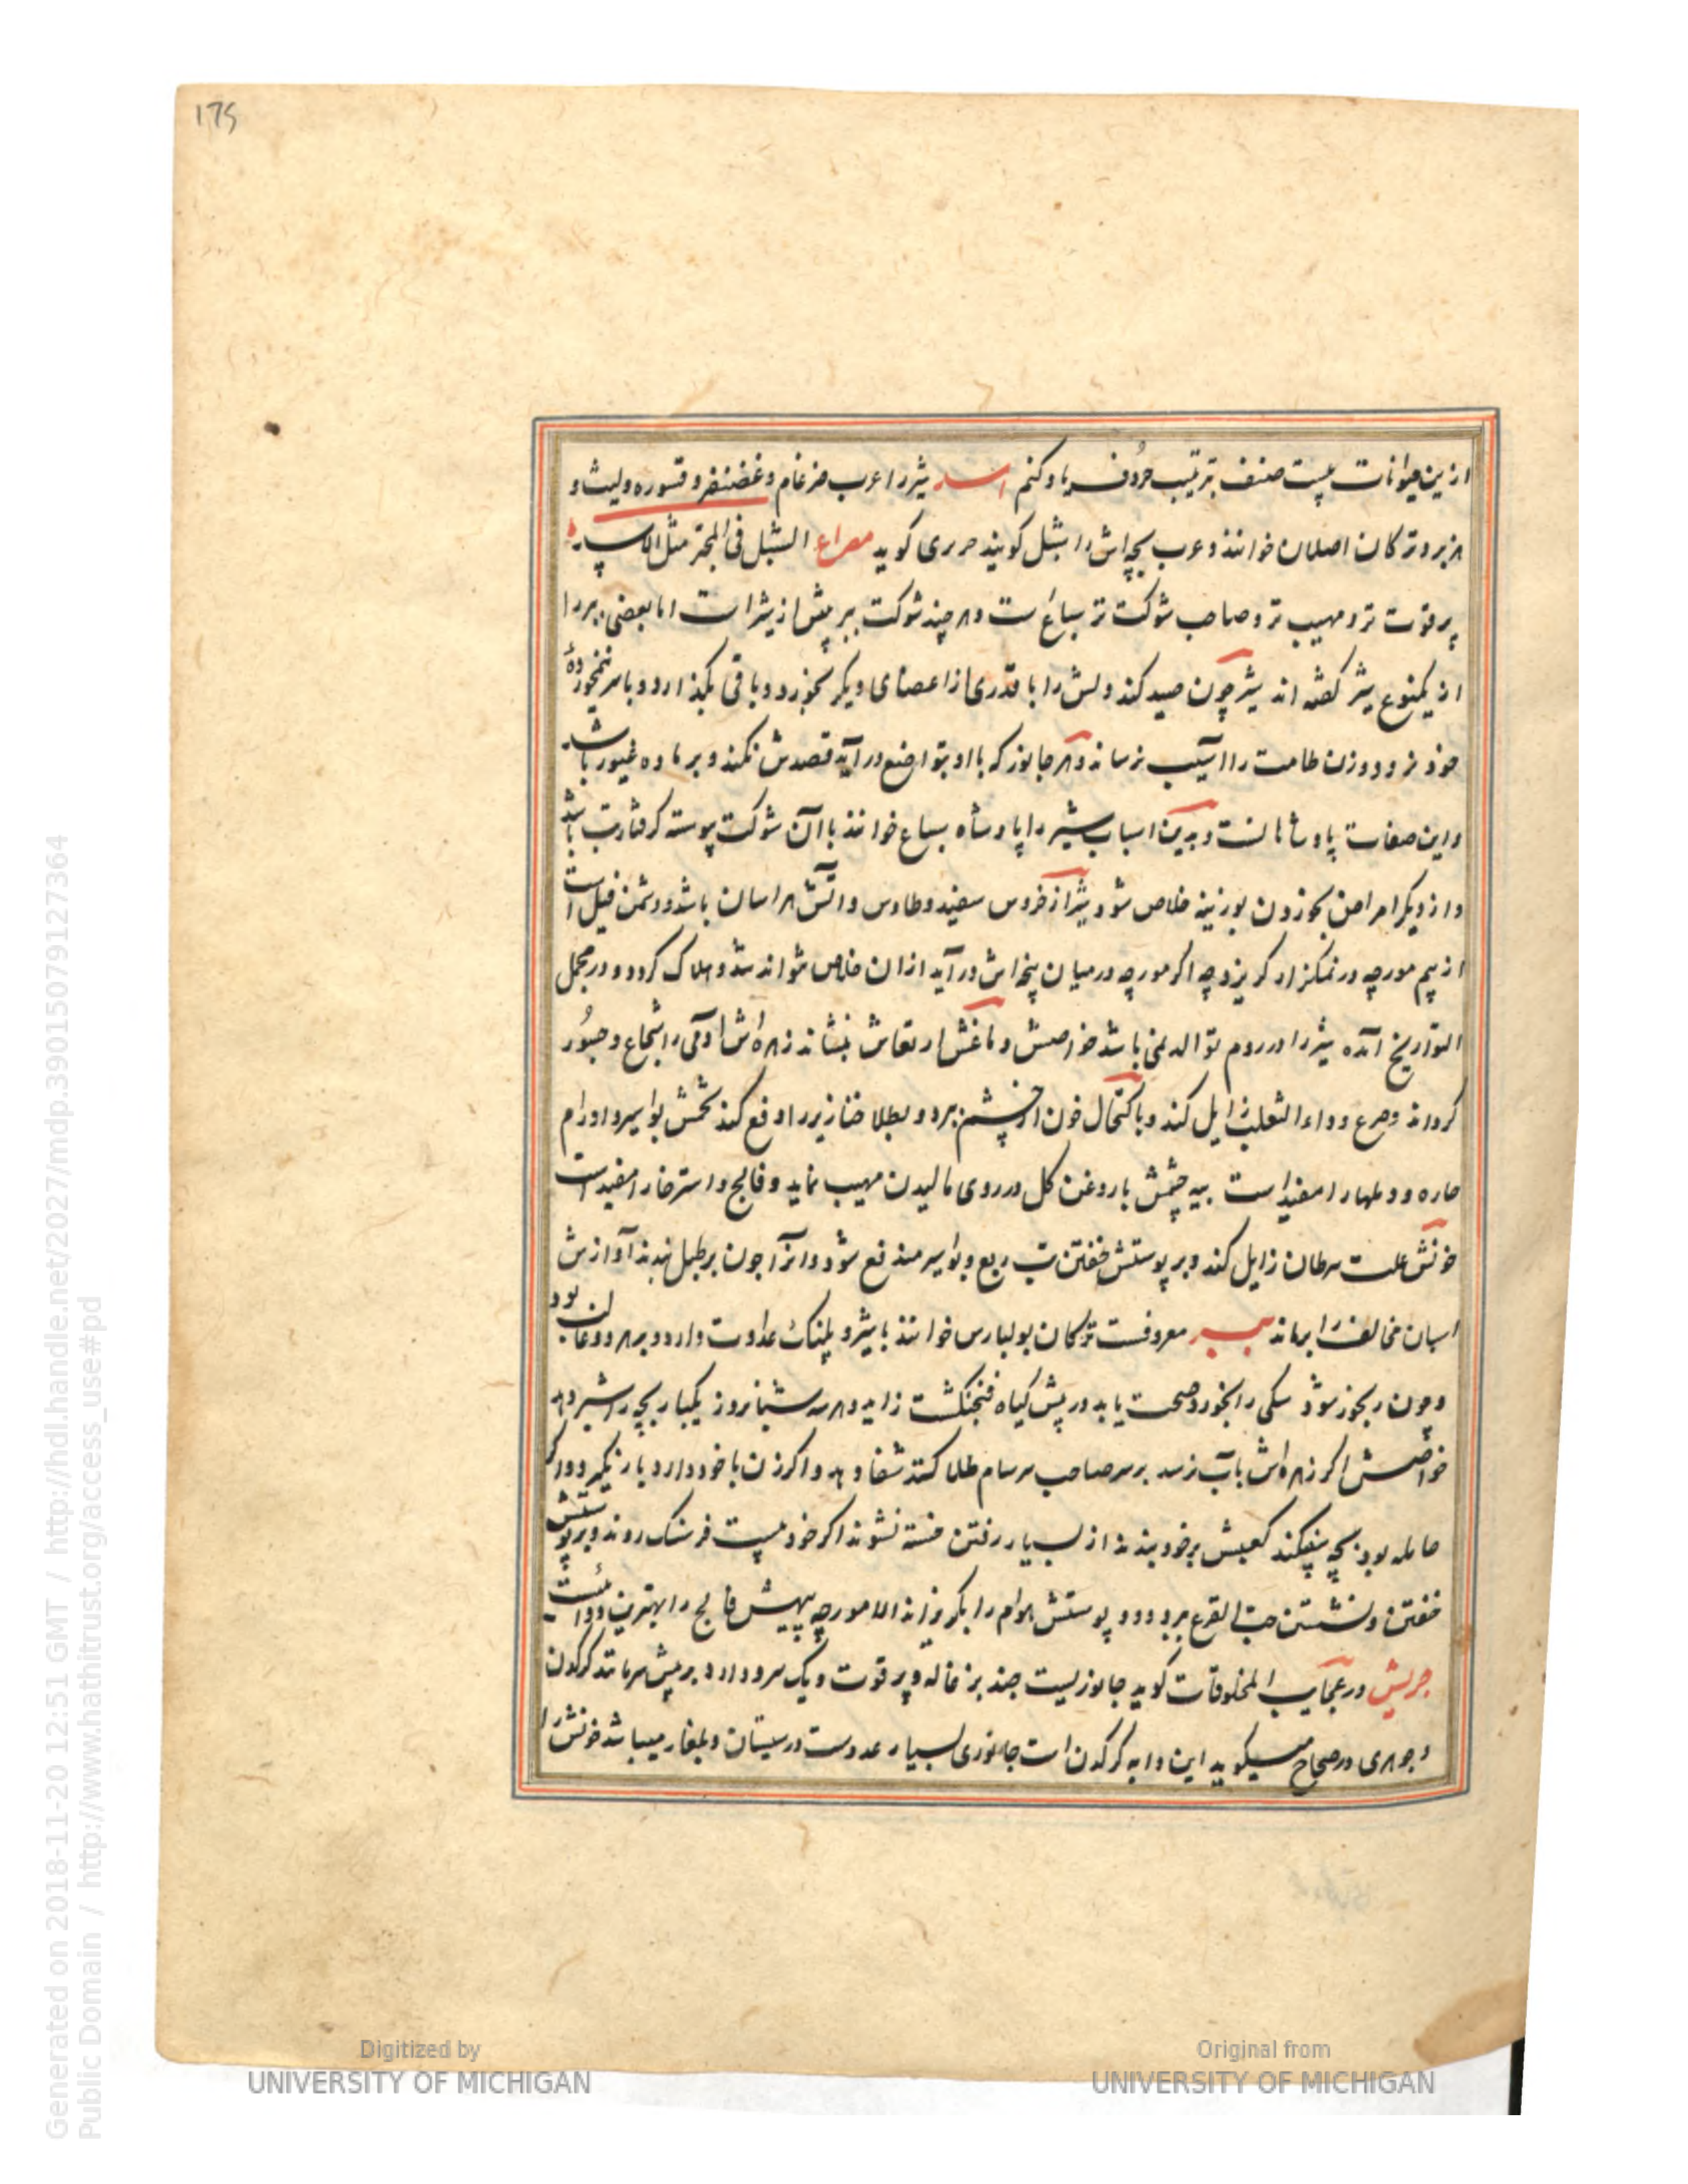 175
ازین حیوانات بیست صنف بترتیب حروف یاد کنم اسد شیر را عرب ضرغام و غضنفر و قسوره و لیث و
هزبر و ترکان اصلان خوانند و عرب بچه اش را شبل کویند حریری کوید مصراع الشبل فی المخبر مثل الاسد
پر قوت تر و مهیب تر و صاحب شوکت تر سباع است و هر چند شوکت ببر بیش از شیر است اما بعضی ببر را
از یکنوع شیر کفته اند شیر چون صید کند دلش را با قدری از اعضای دیکر بخورد و باقی بکذارد و با سر نیمخورده
خود نرود و زن طامث را آسیب نرساند و هر جانور که با او بتواضع درآید قصدش نکند و بر ماده غیور باشد
و این صفات پادشاهانست و بدین اسباب شیر را پادشاه سباع خوانند با آن شوکت پیوسته کرفتار تب باشد
و از دیکر امراض بخوردن بوزینه خلاص شود شیر از خروس سفید و طاوس و آتش هراسان باشد و دشمن فیل است
از بیم مورچه در نمکزار کریزد چه اکر مورچه در میان پنجه اش درآید ازان خلاص نتواند شد و هلاک کردد و در مجمل
التواریخ آمده شیر را در روم توالد نمی باشد خواصش دماغش ارتعاش بنشاند زهره اش آدمی را شجاع و جسور
کرداند و صرع و داء الثعلب زایل کند و باکتحال خون از چشم ببرد و بطلا خنازیر را دفع کند شحمش بواسیر و اورام
حاره و دملها را مفید است پیه چشمش با روغن کل در روی مالیدن مهیب نماید و فالج و استرخا را مفید است
خونش علت سرطان زایل کند و بر پوستش خفتن تب ربع و بواسیر مندفع شود و انرا چون بر طبل بندند آوازش
اسبان مخالف را برماند ببر معروفست ترکان بولبارس خوانند با شیر و پلنک عداوت دارد و بر هر دو غالب بود
و چون رنجور شود سکی را بخورد صحت یابد در پیش کیاه فنجنکشت زاید و هر سه شبانروز یکبار بچه را شیر دهد
خواصش اکر زهره اش بآب زسد بر سر صاحب سرسام طلا کنند شفا دهد و اکر زن با خود دارد بار نکیرد و اکر
حامله بود بچه بیفکند کعبش بر خود بندند از بسیار رفتن خسته نشوند اکر خود بیست فرسنک روند و بر پوستش
خفتن و نشستن حب القرع ببرد و دود پوستش هوام را بکریزاند الا مورچه پیهش فالج را بهترین دوائست
جریش در عجایب المخلوقات کوید جانوریست چند بزغاله و پر قوت و یک سرو دارد بر پیش سر مانند کرکدن
و جوهری در صحاح میکوید این دابه کرکدن است جانوری بسیار عدوست در سیستان و بلغار میباشد خونش را
Generated on 2018-11-20 12:51 GMT / http://hdl.handle.net/2027/mdp.39015079127364
Public Domain / http://www.hathitrust.org/access_use#pd
Digitized by
UNIVERSITY OF MICHIGAN
Original from
UNIVERSITY OF MICHIGAN